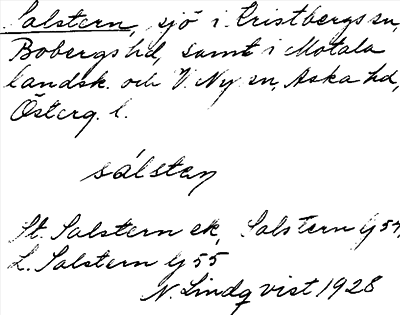 Salstern, sjö i Kristbergs sn,
Bobergs hd, samt i Motala
landsk. och V. Ny sn, Aska hd,
Österg. l.
sálstan
St. Salstern ek, Salstern Gj 54,
L. Salstern Gj 55
N. Lindqvist 1928